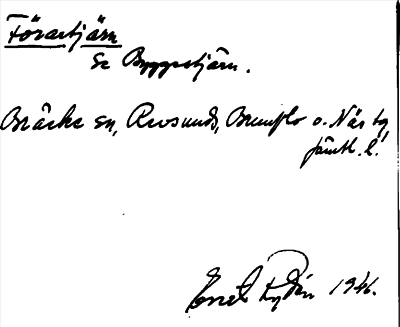 Förartjärn
Se Byggetjärn.
Bräcke sn, Revsunds, Brunflo o. Näs tg
Jämtl. l.
1946.